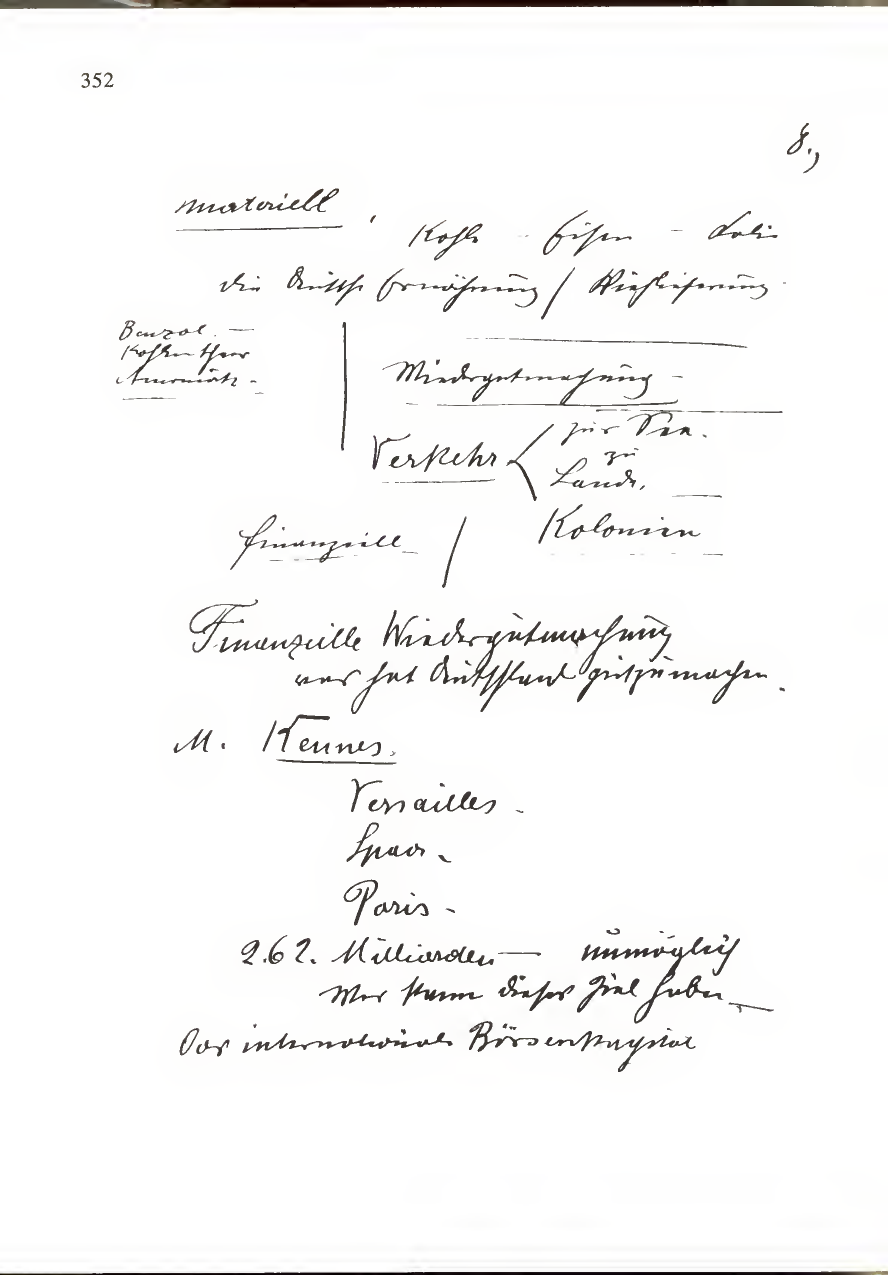 352
8.,
materiell,
Kohle - Eisen - Kali
die deutsche Ernährung / Viehlieferung
Benzol. —
Kohlen theer
Amoniak -
Wiedergutmachung -
Verkehr < zur See.
zu
Lande.
finanziell / Kolonien
Finanzielle Wiedergutmachung
was hat Deutschland gutzumachen.
M. Kennes.
Versailles -
Spaa -
Paris -
262. Milliarden — unmöglich
Wer kann dieses Ziel haben —
Das internationale Börsenkapital